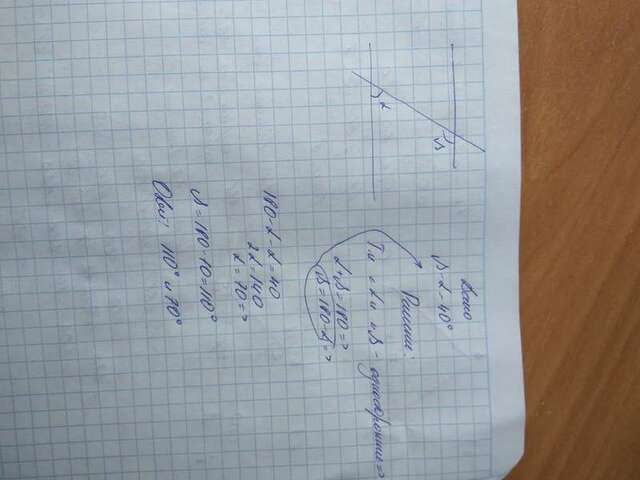 α
β
Дано
β-α=40°
Решение:
Т.к ∠α и ∠β - односторонние =>
α+β=180 =>
β=180-α =>
180-α-α=40
2α=140
α=70 =>
β=180-70=110°
Ответ: 110° и 70°